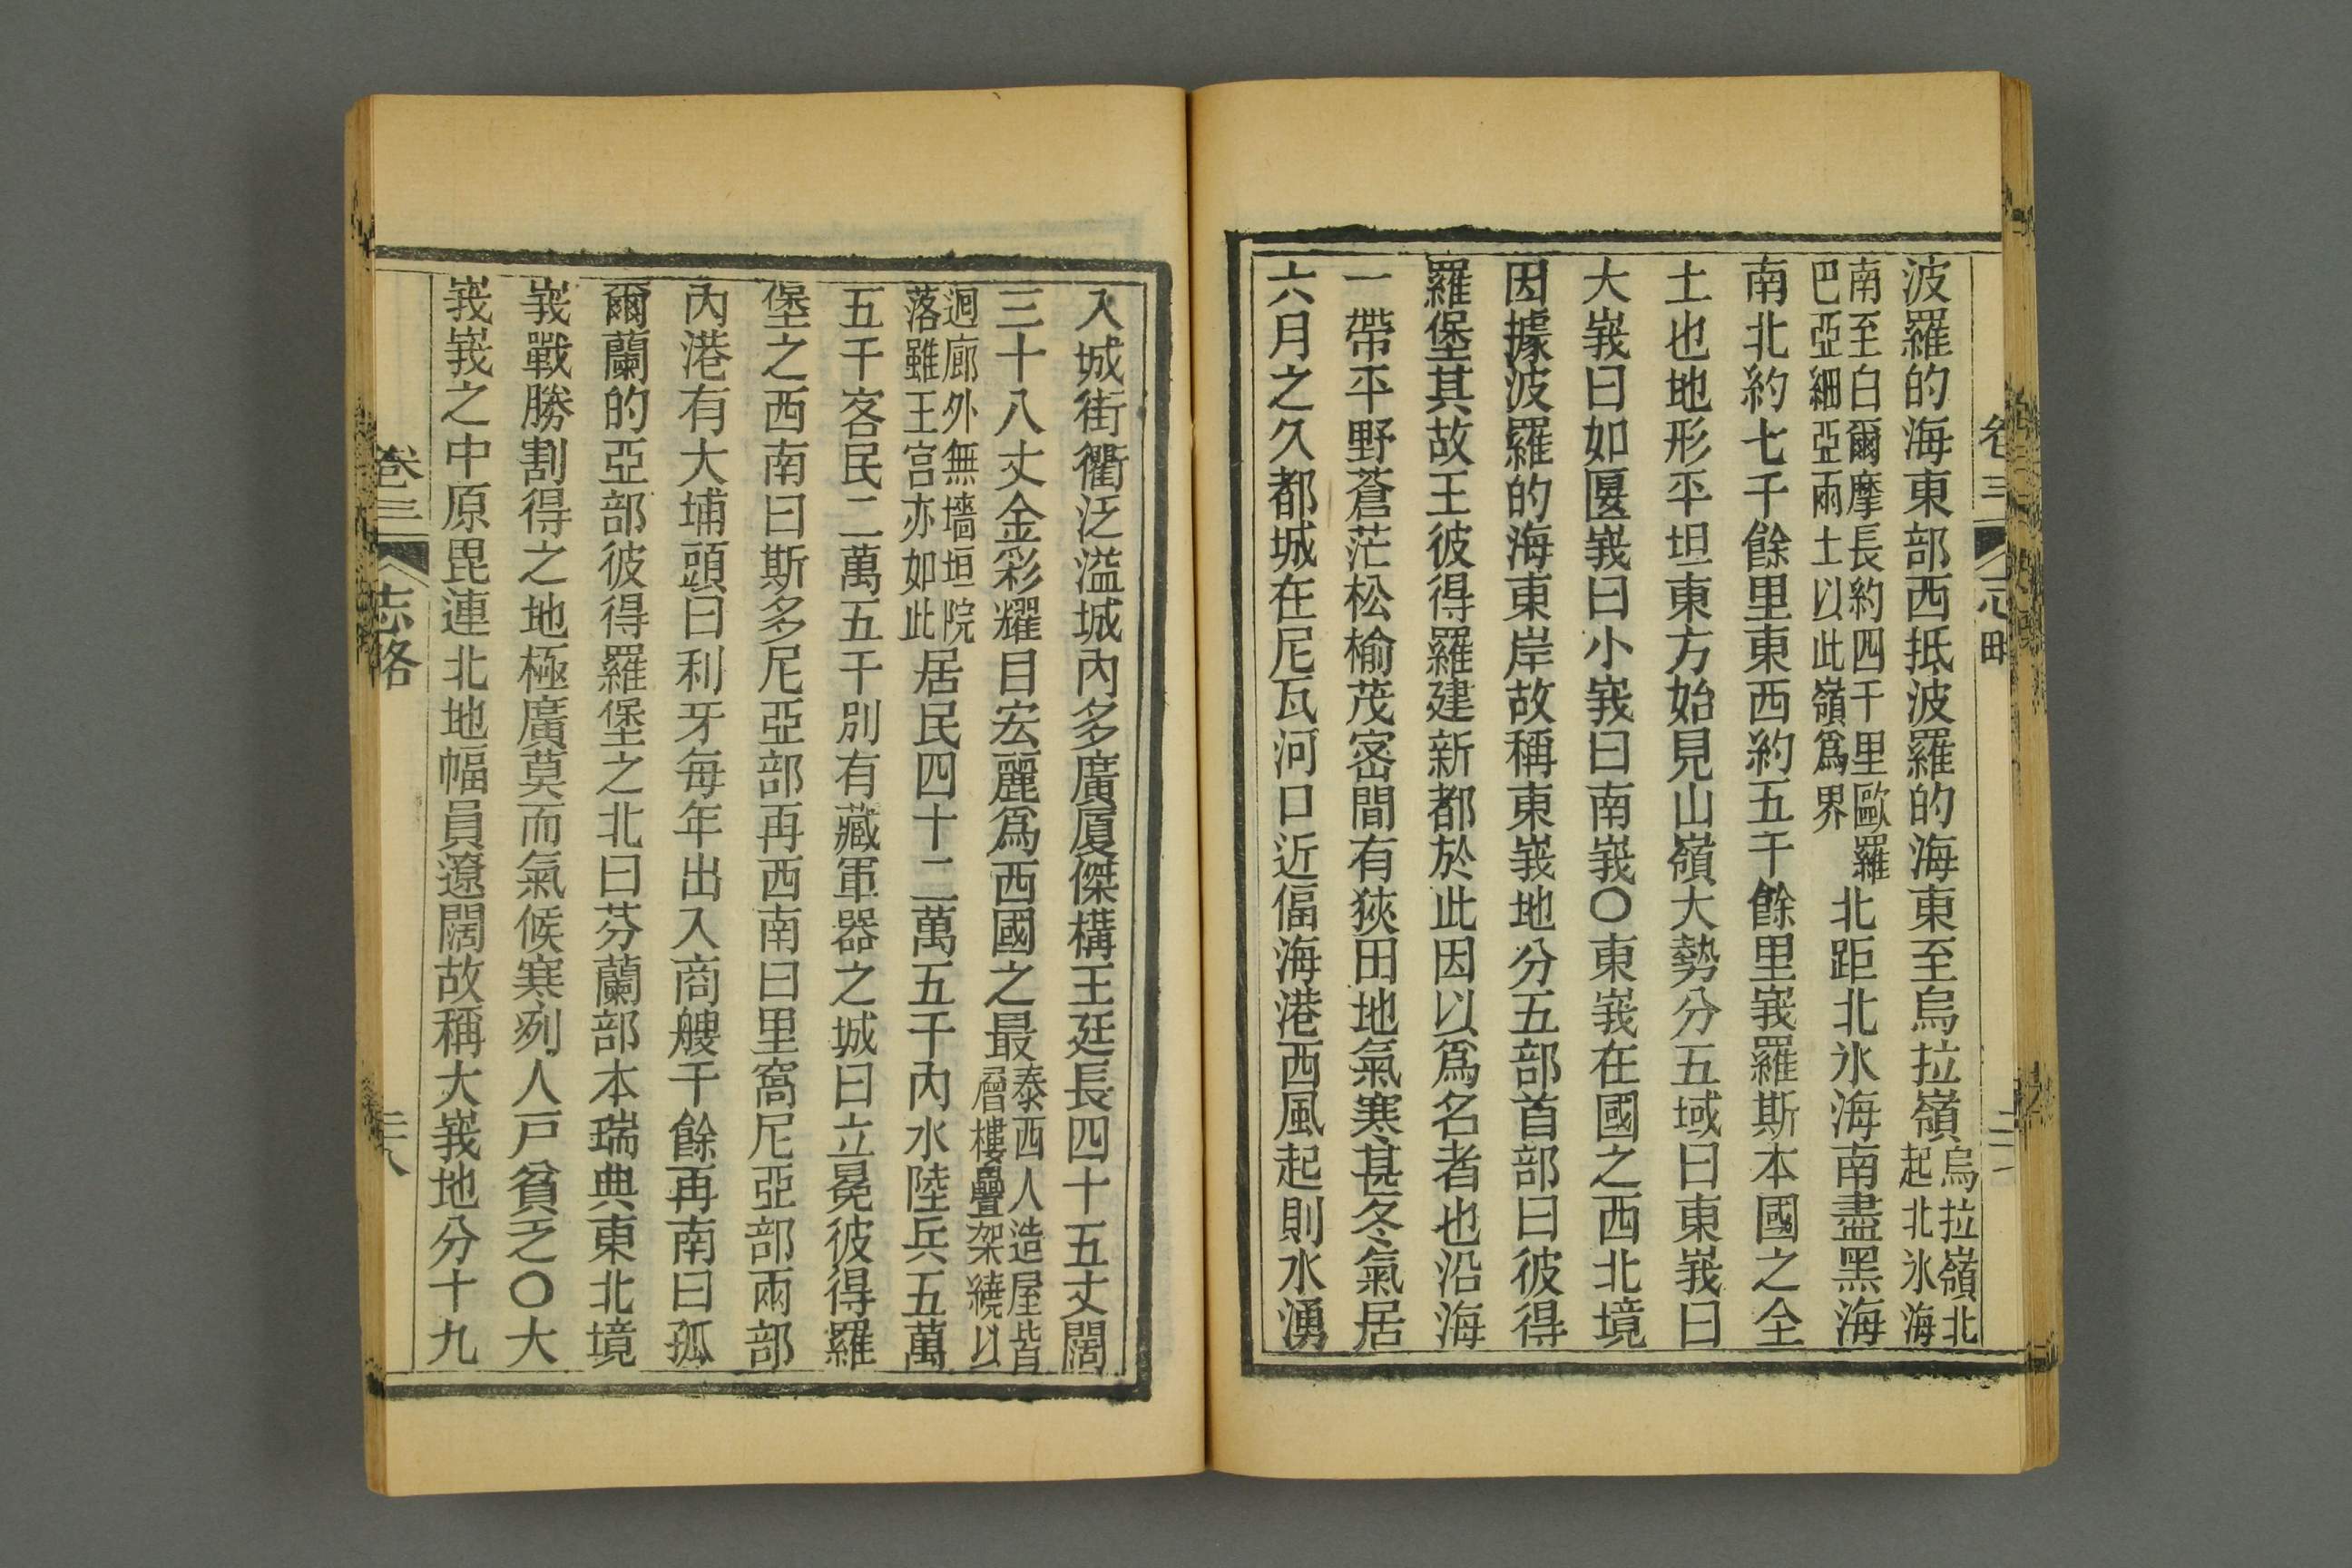 波羅的海東部西抵波羅的海東至烏拉嶺烏拉嶺北起北氷海
南至白爾摩長約四千里歐羅巴亞細亞兩土以此嶺爲界北距北氷海南盡黑海
南北約七千餘里東西約五千餘里峩羅斯本國之全
土也地形平坦東方始見山嶺大勢分五域曰東峩曰
大峩曰如匽峩曰小峩曰南峩〇東峩在國之西北境
因據波羅的海東岸故稱東峩地分五部首部曰彼得
羅堡其故王彼得羅建新都於此因以爲名者也沿海
一帶平野蒼茫松榆茂密間有狹田地氣寒甚冬氣居
六月之久都城在尼瓦河口近偪海港西風起則水湧
卷三
入城街衢泛溢城內多廣厦傑構王廷長四十五丈闊
三十八丈金彩耀目宏麗爲西國之最泰西人造屋皆層樓疊架繞以
迴廊外無墻垣院落雖王宮亦如此居民四十二萬五千內水陸兵五萬
五千客民二萬五千別有藏軍器之城曰立冕彼得羅
堡之西南曰斯多尼亞部再西南曰里窩尼亞部兩部
內港有大埔頭曰利牙每年出入商艘千餘再南曰孤
爾蘭的亞部彼得羅堡之北曰芬蘭部本瑞典東北境
峩戰勝割得之地極廣莫而氣候寒冽人戸貧乏〇大
峩峩之中原毘連北地幅員遼闊故稱大峩地分十九
卷三 志略 二十八